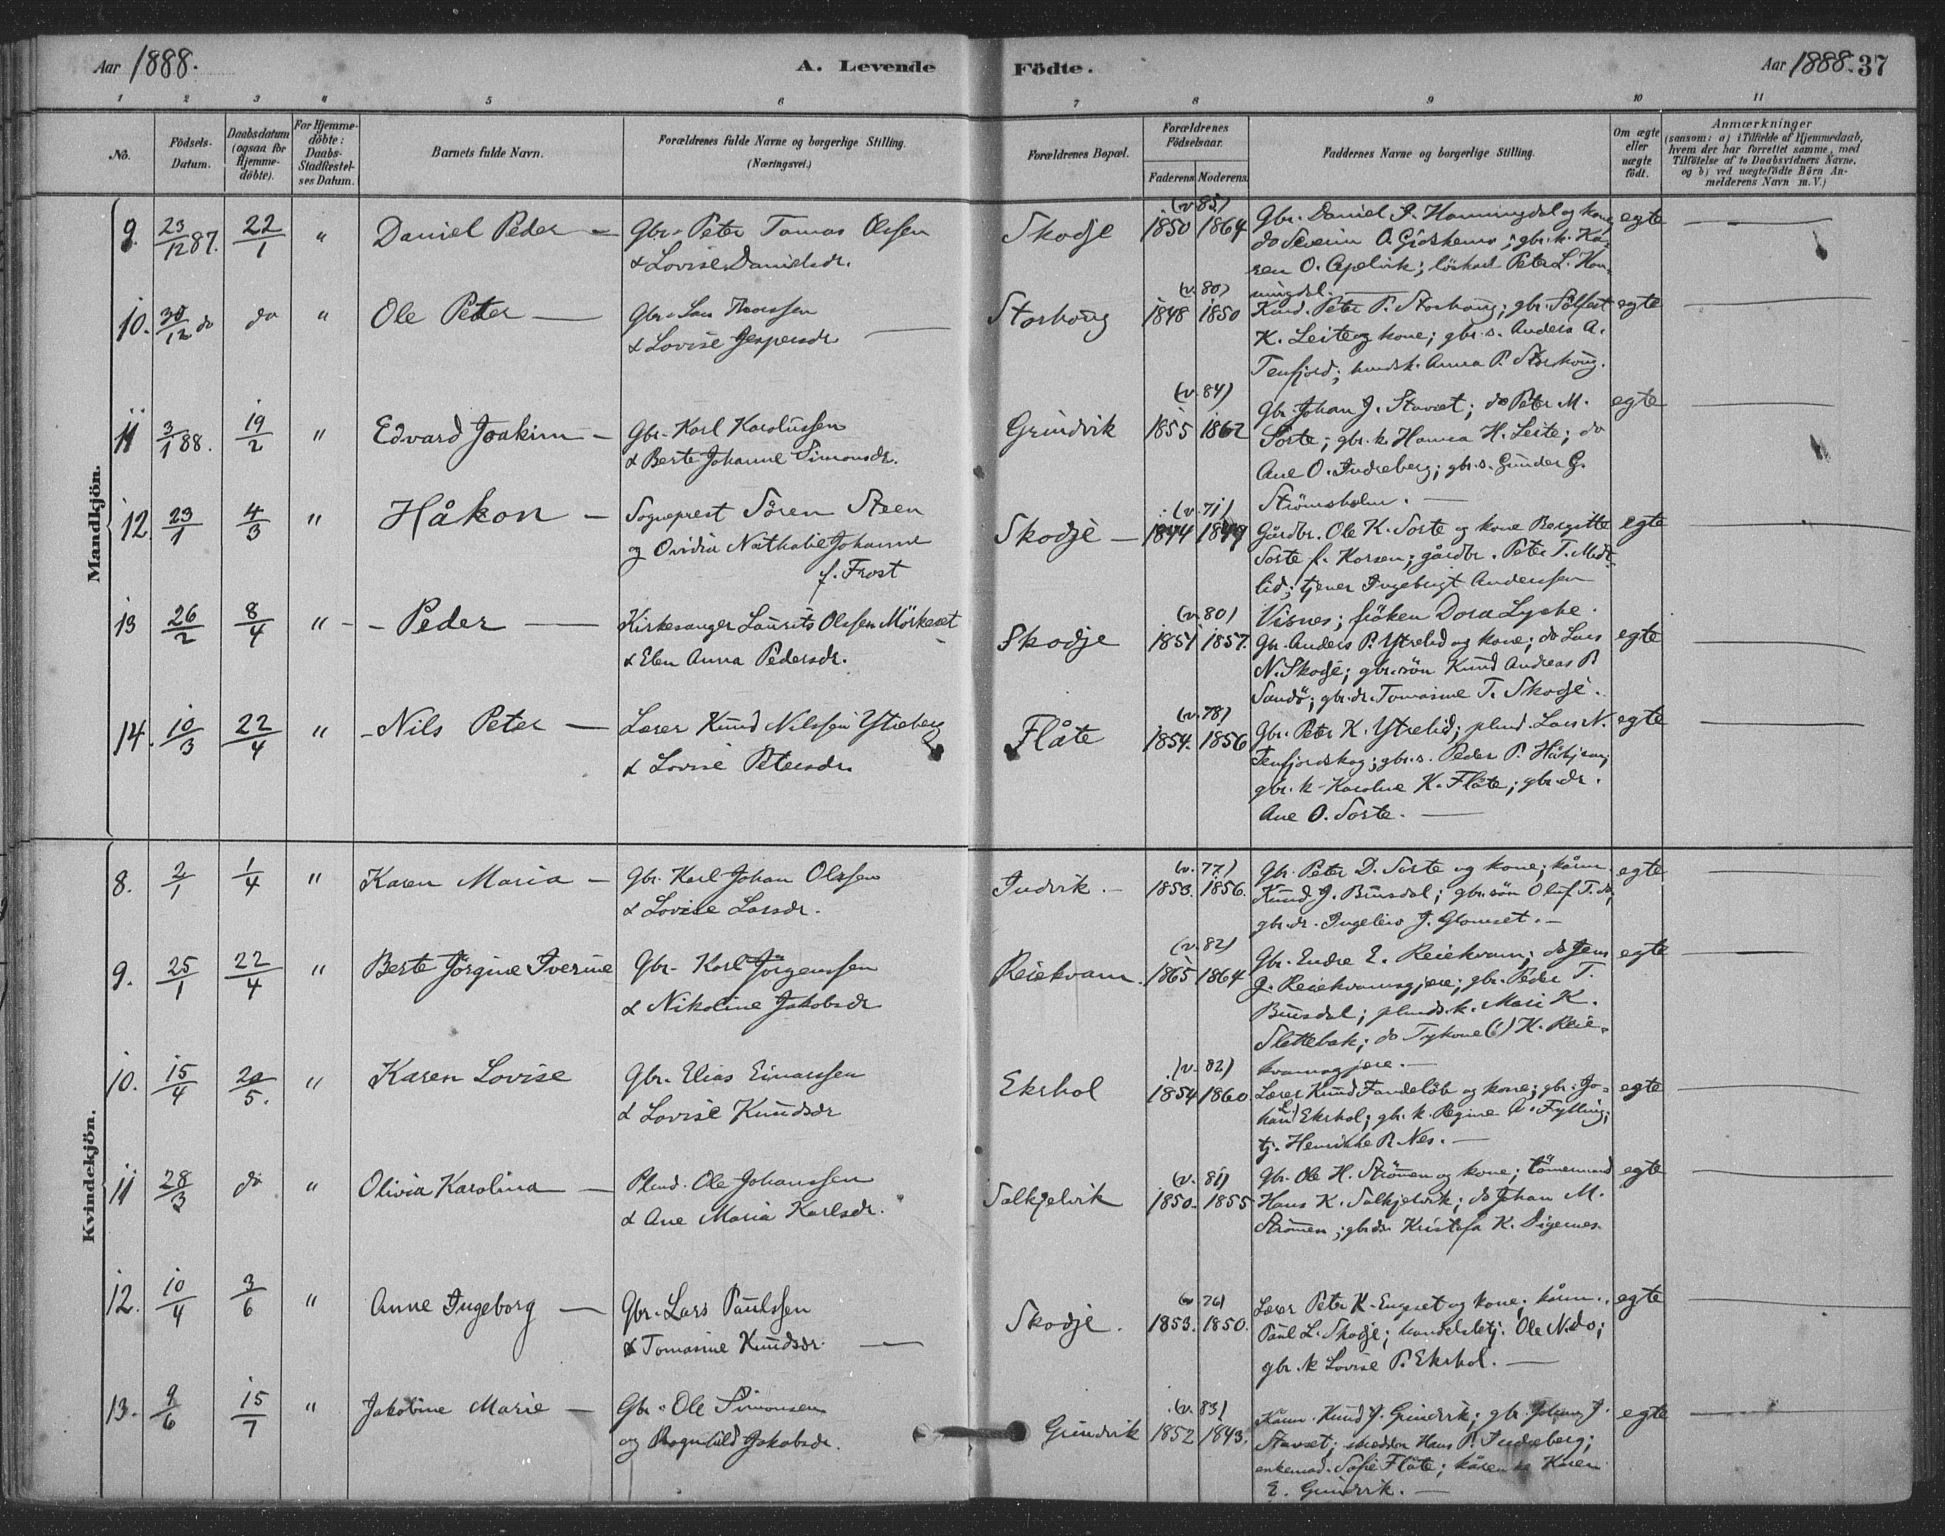 Aar 1888. A. Levende Födte. Aar 1888. 37
1 2 3 4 5 6 7 8 9 10 11
No.
Födsels-Datum.
Daabsdatum (ogsaa for Hjemme-döbte).
For Hjemme-döbte: Daabs-Stadfæstel-ses Datum.
Barnets fulde Navn.
Forældrenes fulde Navne og borgerlige Stilling.
(Næringsvei.)
Forældrenes Bopæl.
Forældrenes Födselsaar.
Faderens Moderens
Faddernes Navne og borgerlige Stilling.
Om ægte eller uægte födt.
Anmærkninger
(saasom: a) i Tilfælde af Hjemmedaab,
hvem der har forrettet samme, med
Tilföielse af to Daabsvidners Navne,
og b) ved uægtefödte Börn An-
melderens Navn m. V.)
Mandkjön.
9. 23/12 87. 22/1 " Daniel Peder —
Gbr. Peter Tomas Olsen
& Lovise Danielsdr.
Skodje
(v. 85)
1850 1864
Gbr. Daniel P. Honningdal og kone;
do Severin O. Gidskemo; gbr. k. Ka-
ren O. Apelvik; löskarl Peter L. Hon-
ningdal. —
egte
10. 30/12 do do " Ole Peter —
Gbr. Lars Knudssen
& Lovise Jespersdr.
Storhoug
(v. 80)
1848 1850
Knud Peter P. Storhoug; gbr. Sölfest
K. Leite og kone; gbr. s. Anders A.
Tenfjord; hmdsk. Anna P. Storhoug.
egte
11 3/1 88. 19/2 " Edvard Joakim —
Gbr. Karl Karolussen
& Berte Johanne Simonsdr.
Grindvik
(v. 84)
1855 1862
Gbr. Johan J. Stavset; do Peter M.
Sorte; gbr. k. Hanna H. Leite; do
Ane O. Indreberg; gbr. s. Gunder G.
Strömsholm. —
egte
12 23/1 4/3 " Håkon —
Sogneprest Sören Steen
og Ovidia Nathalie Johanne
f. Frost
Skodje —
(v. 71)
1844 1849
Gårdbr. Ole K. Sorte og kone Bergitte
Sorte f. Korsen; gårdbr. Peter T. Midt-
lid; tjener Ingebrigt Anderssen
Visnes; fröken Dora Lyche.
egte
13 26/2 8/4 " — Peder —
Kirkesanger Laurits Olssen Mörkeset
& Elen Anna Pedersdr.
Skodje
(v. 80)
1851 1857.
Gbr. Anders P. Ytrelid og kone; do Lars
N. Skodje; gbr. sön Knud Andreas P.
Sandö; gbr. dr. Tomasine T. Skodje.
egte
14. 10/3 22/4 " Nils Peter —
Lærer Knud Nilssen Ytreberg
& Lovise Petersdr.
Flåte
(v. 78)
1854. 1856
Gbr. Peter K. Ytrelid; plmd. Lars N.
Tenfjordskog; gbr. s. Peder P. Håhjem;
gbr. k. Karoline K. Flåte; gbr. dr.
Ane O. Sorte. —
egte
Kvindekjön.
8. 2/1 1/4 " Karen Maria —
Gbr. Karl Johan Olssen
& Lovise Larsdr.
Indvik. —
(v. 77)
1853. 1856.
Gbr. Peter D. Sorte og kone; kårm.
Knud J. Buusdal; gbr. sön Oluf T. do;
gbr. dr. Ingeleiv J. Glomset. —
egte
9. 25/1 22/4 " Berte Jörgine Iverine
Gbr. Karl Jörgenssen
& Nikoline Jakobsdr
Reiekvam.
(v. 82)
1865 1864
Gbr. Endre E. Reiekvam; do Jens
G. Reiekvamsgjære; gbr. Peder T.
Buusdal; plmds. k. Mari K.
Slettebak; do Tykone(!) H. Reie-
kvamsgjære. —
egte
10. 15/4 20/5. " Karen Lovise
Gbr. Elias Einarssen
& Lovise Knudsdr
Ekrhol
(v. 82)
1854 1860.
Lærer Knud Fandelöb og kone; gbr. Jo-
han L. Ekrhol; gbr. k. Regine A. Fylling;
tj. Henrikke P. Nes. —
egte
11 28/3 do " Olivia Karolina —
Plmd. Ole Johanssen
& Ane Maria Karlsdr.
Solkjelvik
(v. 81)
1850. 1855
Gbr. Ole H. Strömmen og kone; tömermand
Hans K. Solkjelvik; do Johan M.
Strömmen; gbr. dr. Kristofa K. Digernes.
egte
12. 10/4 3/6 " Anne Ingeborg —
Gbr. Lars Paulssen
& Tomasine Knudsdr. —
Skodje.
(v. 76)
1853. 1850.
Lærer Peter K. Engeset og kone; kårm.
Paul L. Skodje; handelsbetj. Ole N. do;
gbr. k. Lovise P. Ekrhol. —
egte
13. 9/6 15/7 " Jakobine Marie —
Gbr. Ole Simonsen
og Ragnhild Jakobsdr.
Grindvik
(v. 83)
1852 1843.
Kårm. Knud J. Grindvik; gbr. Johan J.
Stavset; skrædder Hans P. Indreberg;
enkemad. Sofie Flåte; Karen
E. Grindvik. —
egte